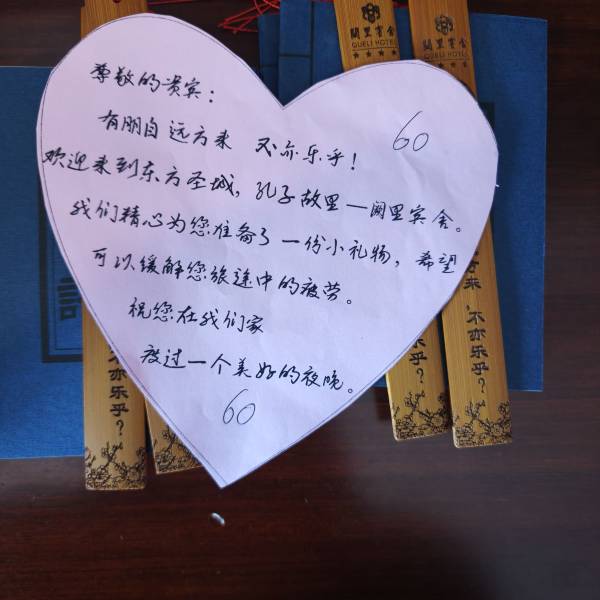 闕里賓舍
QUELI HOTEL
★★★★
闕里賓舍
QUELI HOTEL
★★★★
尊敬的贵宾：
有朋自远方来 不亦乐乎！
60
欢迎来到东方圣城，孔子故里—阙里宾舍。
我们精心为您准备了一份小礼物，希望
可以缓解您旅途中的疲劳。
祝您在我们家
度过一个美好的夜晚。
60
不亦乐乎？
亦乐乎？
来，不亦乐乎？